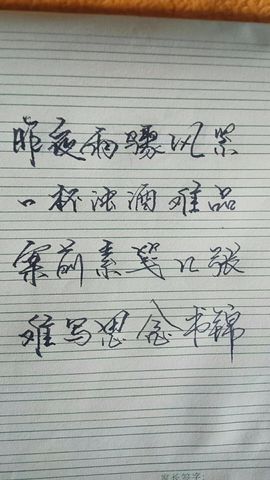 昨夜雨骤风紧
一杯浊酒难品
案前素笺几张
难写思念书锦
家长签字: